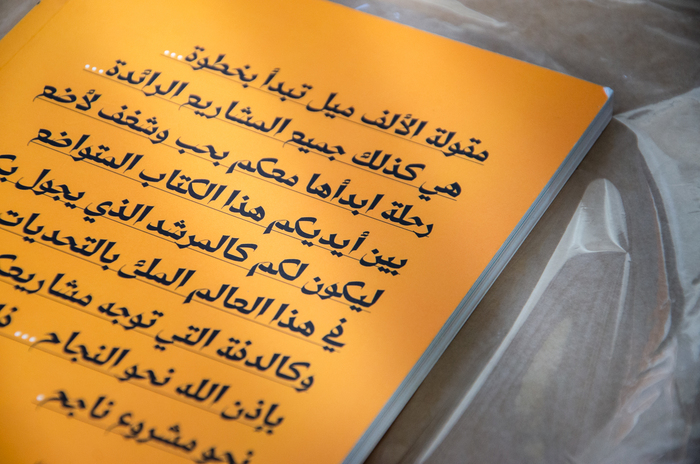 مقولة الألف ميل تبدأ بخطوة...
هي كذلك جميع المشاريع الرائدة...
رحلة ابدأها معكم بحب وشغف لأضع
بين أيديكم هذا الكتاب المتواضع
ليكون لكم كالمرشد الذي يجول
في هذا العالم الملئ بالتحديات
وكالدفة التي توجه
بإذن الله نحو النجاح...
نحو مشروع ناجح.